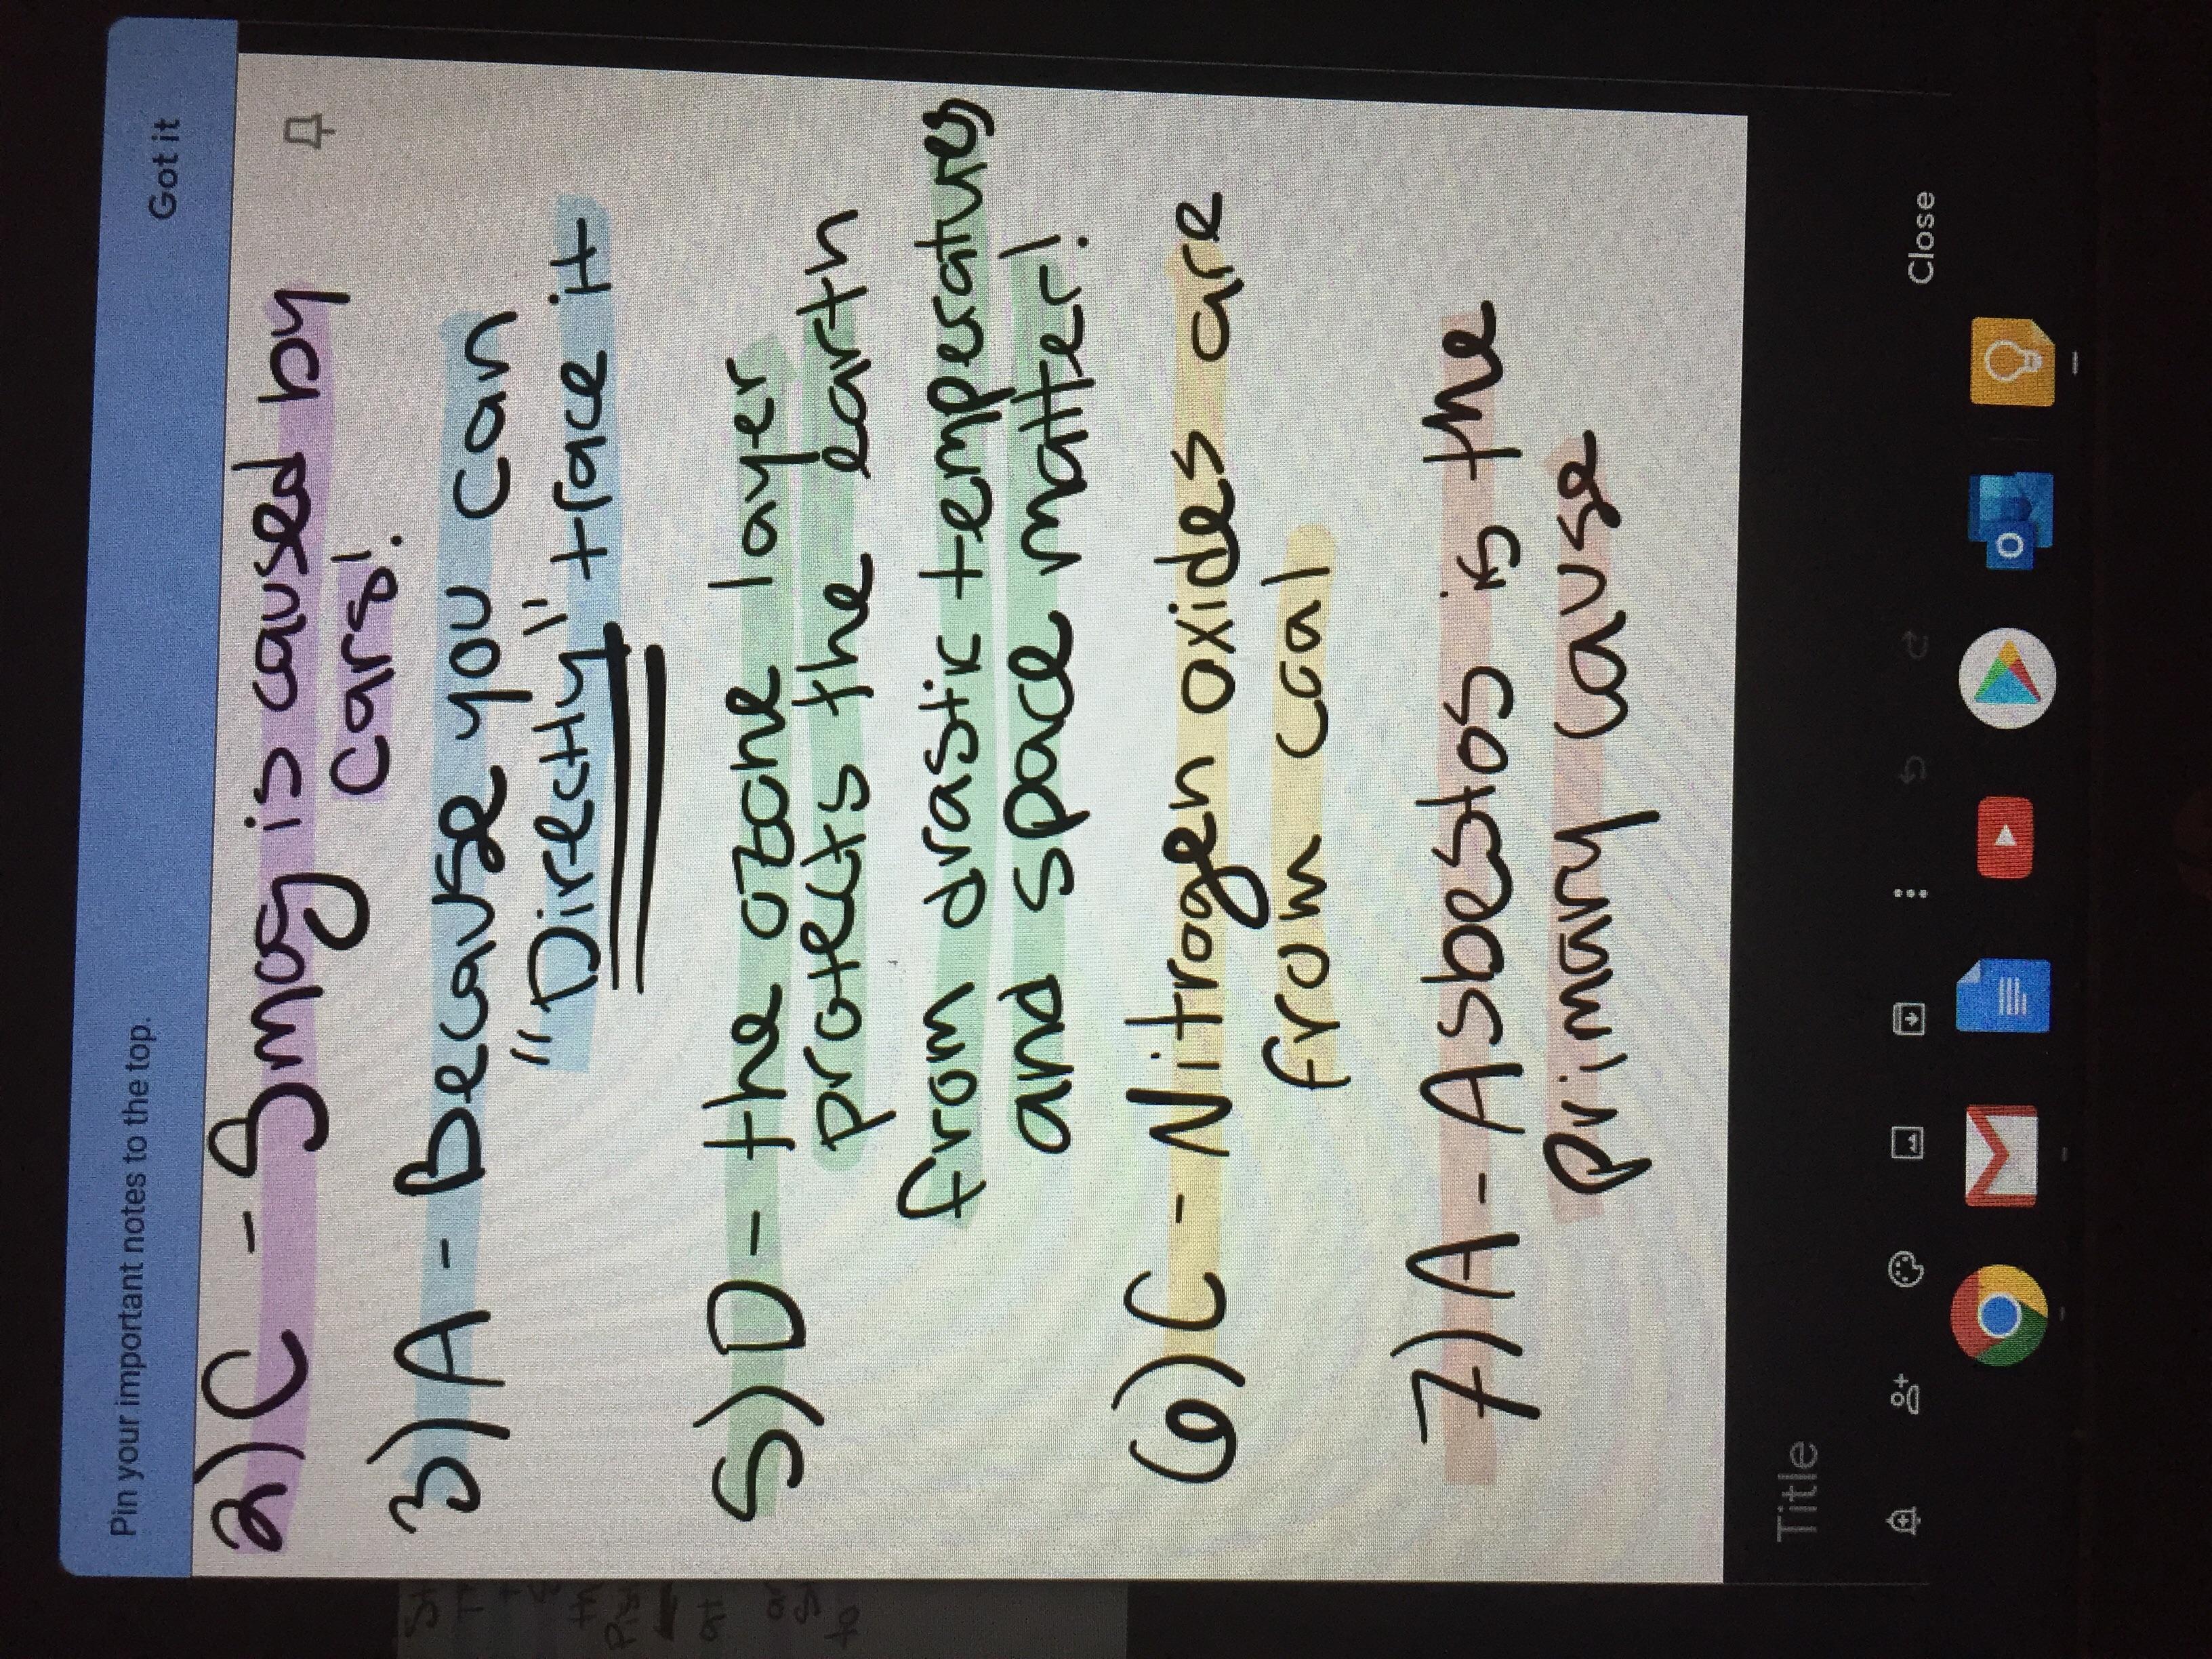 Pin your important notes to the top.
Got it
2) C - Smog is caused by
cars!
3) A - Because you can
"Directly" trace it
5) D - the ozone layer
protects the earth
from drastic temperatures
and space matter!
6) C - Nitrogen oxides are
from coal
7) A - Asbestos is the
primary cause
Title
Close